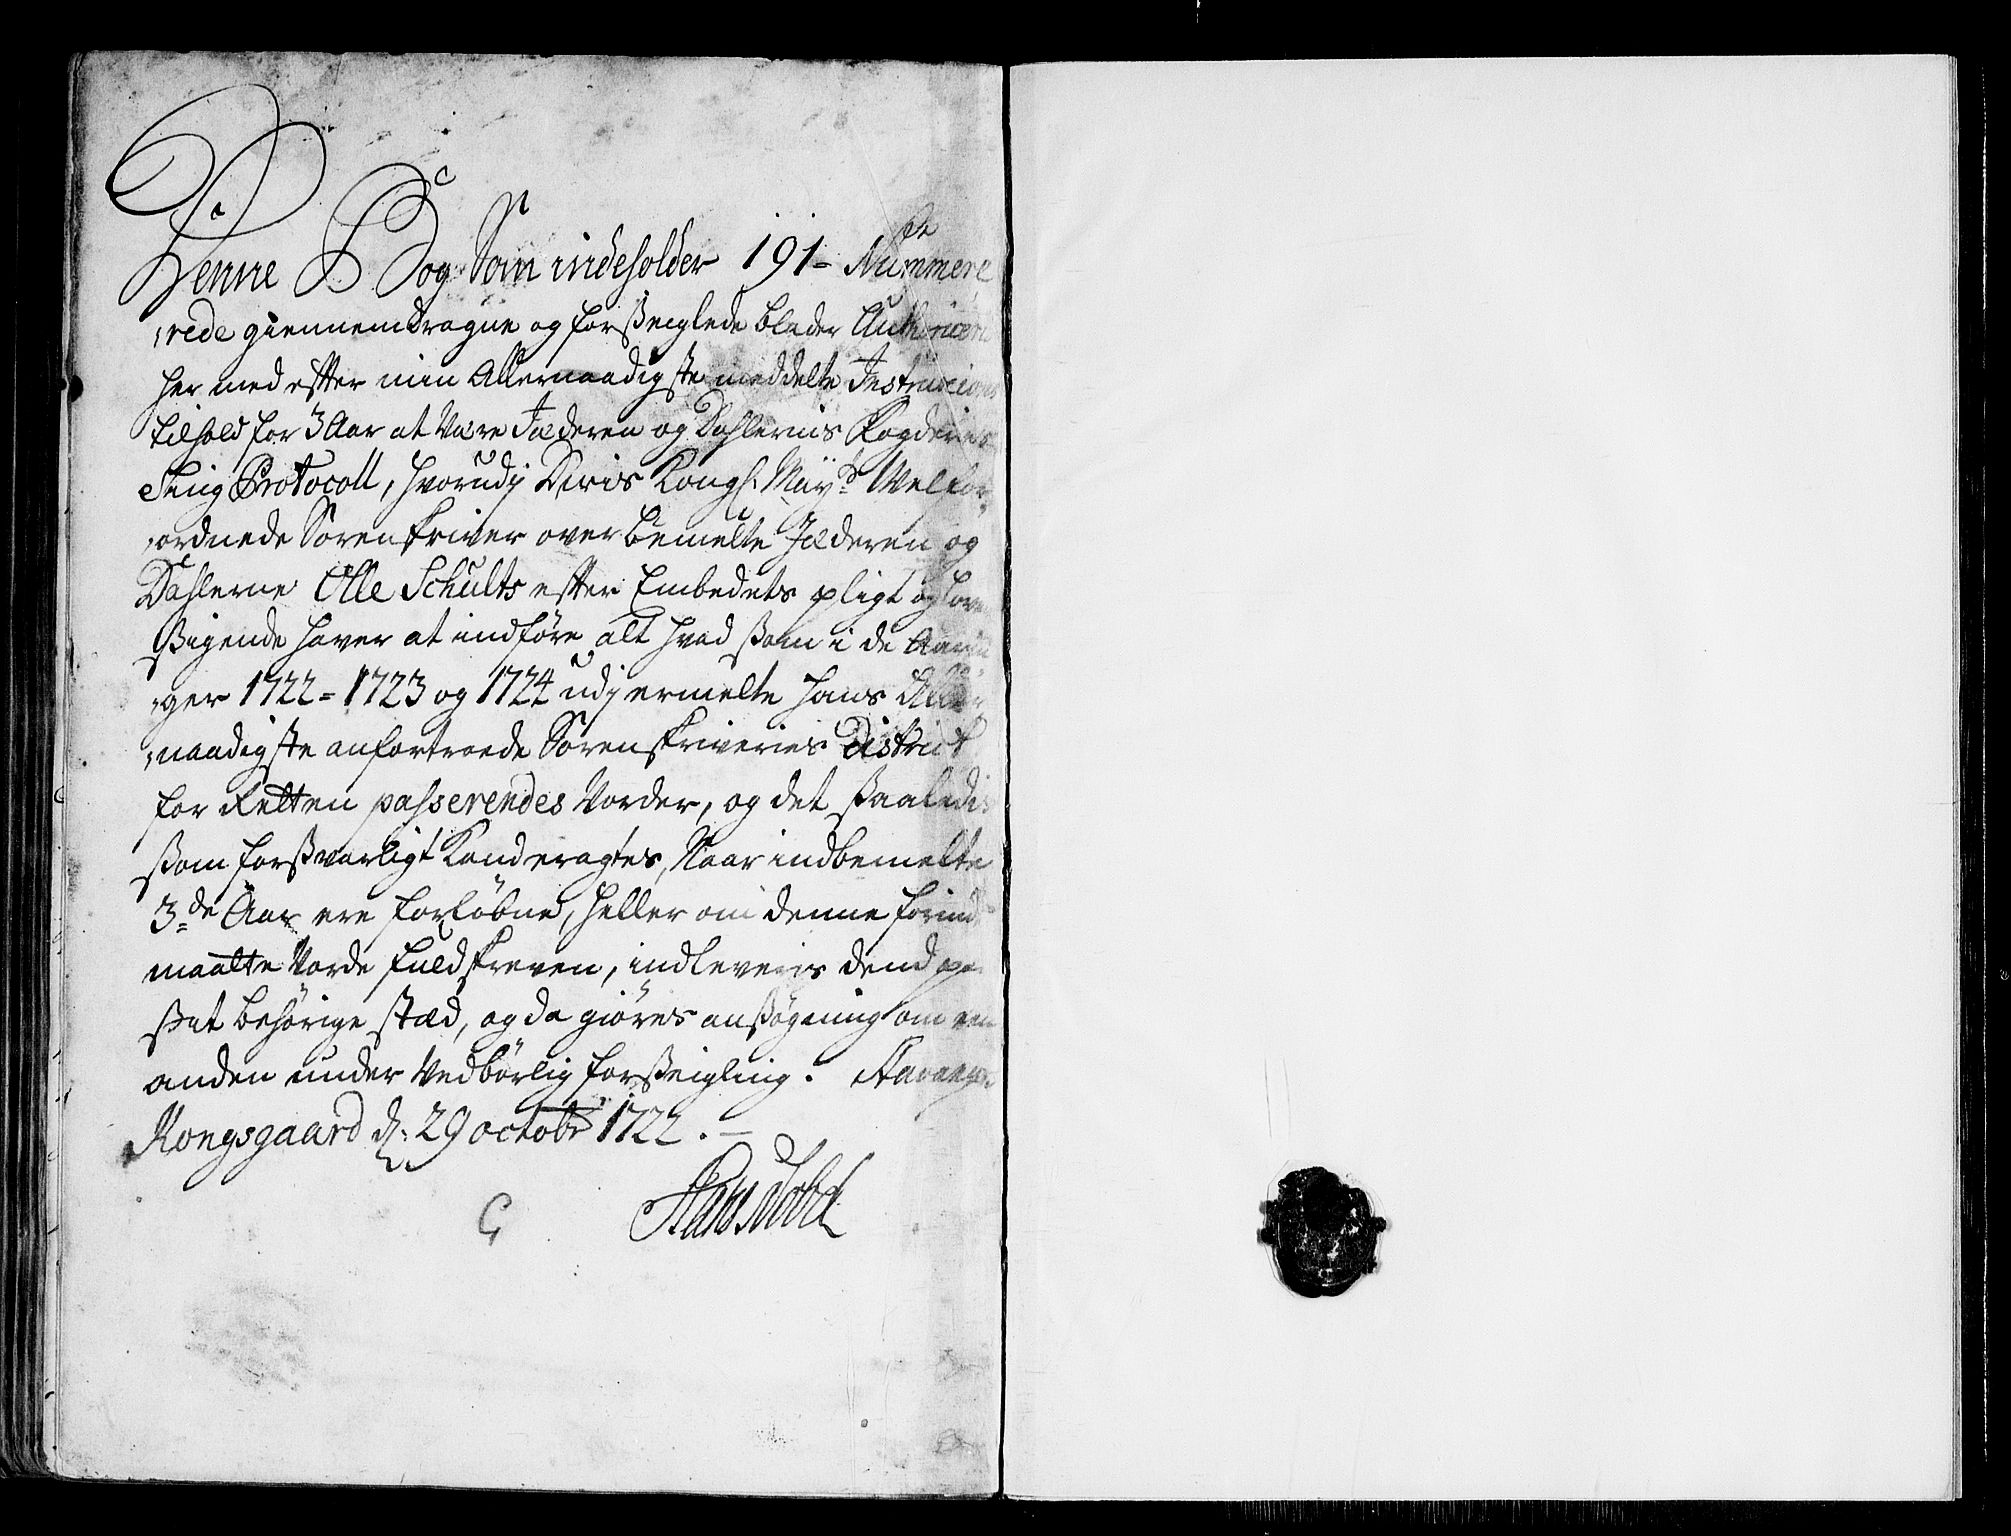 Denne Bog Som indeholder 191 - Nummere
rede giennemdragne og forßeiglede blader Authoricer
her med efter min Allernaadigste meddelte Instruction
tilhold for 3 Aar at Være Jæderen og Dahlernis fogderies
Ting Protocoll, hvorudj Deris Kongl: Mayts Welfor„
„ordnede Sorenskriver over bemelte Jæderen og
Dahlerne Olle Schults efter Embedets pligt og
ßigende haver at indføre alt hvad ßom i de Aarin
„ger 1722 - 1723 og 1724 udj ermelte hans Aller
„naadigste anfortroede Sorenskriveries District
for Retten passerendes Vorder, og det ßaaledis
ßom forßvarligt Kand eragtes, Naar indbemelte
3de Aar ere forløbne, heller om denne forind
maalte Vorde fuldskreven, indleveris dend paa
ßit behørige stæd, og da giøres anßøgning om een
anden under Vedbørlig forßeigling. Stavanger
Kongsgaard d: 29 octobr 1722. -
Hans